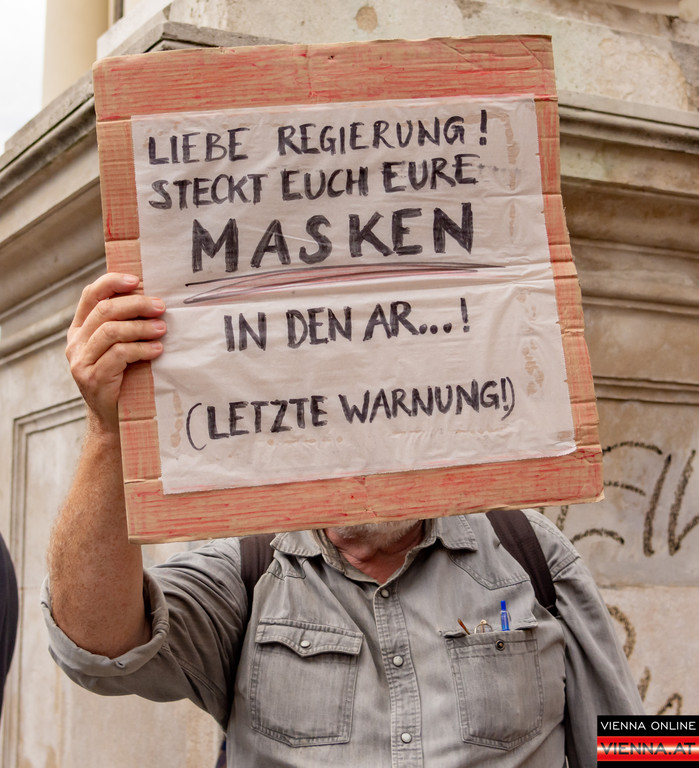 LIEBE REGIERUNG!
STECKT EUCH EURE
MASKEN
IN DEN AR...!
(LETZTE WARNUNG!)
VIENNA ONLINE
VIENNA.AT